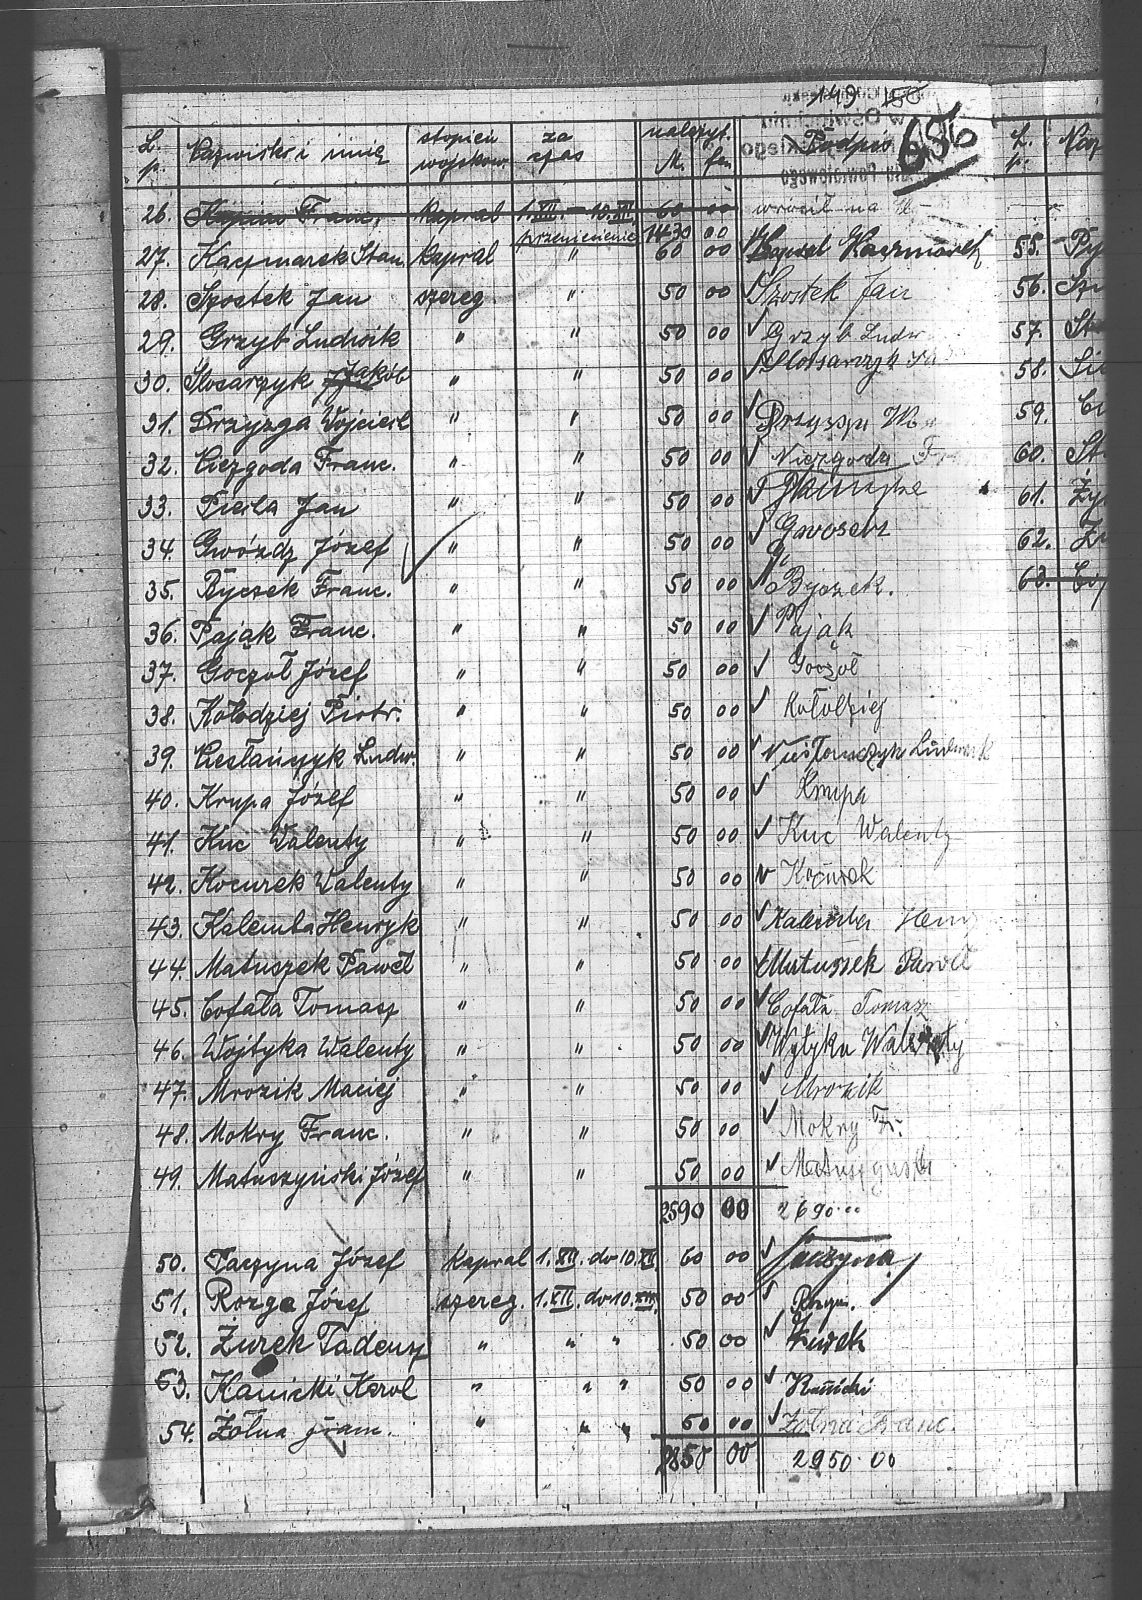 149 150
656
L. p. Nazwisko i imię stopień wojskow. za czas należyt. M. fen Podpis L. p.
26. Franc. kapral 1.XII. - 10.XII. 60 00 wrócił na
przeniesienie 1430 00
27. Kaczmarek Stan. kapral " 60 00 Kaczmarek 55.
28. Szostek Jan szereg " 50 00 Szostek Jan 56.
29. Grzyb Ludwik " " 50 00 Grzyb Ludw 57.
30. Ślosarczyk Jakób " " 50 00 Slosarczyk 58.
31. Drzyzga Wojciech " " 50 00 59.
32. Niezgoda Franc. " " 50 00 Niezgoda 60. St
33. Jan " " 50 00 61. Ży
34. Gwóźdz Józef " " 50 00 62.
35. Byczek Franc. " " 50 00 Byczek. 63.
36. Pająk Franc. " " 50 00 Pająk
37. Goczoł Józef " " 50 00 Goczoł
38. Kołodziej Piotr. " " 50 00 Kołodziej
39. Ludw. " " 50 00 Ludwik
40. Krupa Józef " " 50 00 Krupa
41. Kuc Walenty " " 50 00 Kuc Walenty
42. Kocurek Walenty " " 50 00 Kocurek
43. Kalemba Henryk " " 50 00 Kalemba Henry
44. Matuszek Paweł " " 50 00 Matuszek Paweł
45. Cofała Tomasz " " 50 00 Cofała Tomasz
46. Wojtyka Walenty " " 50 00 Walenty
47. Mrozik Maciej " " 50 00 Mrozik
48. Mokry Franc. " " 50 00 Mokry Fr.
49. Matuszyński Józef " " 50 00
2590 00 2690.00
50. Taczyna Józef kapral 1.XII. do 10.XII. 60 00 Taczyna
51. Rozga Józef szereg. 1.XII. do 10.XII. 50 00
52. Żurek Tadeusz " " " 50 00 Żurek
53. Kanicki Karol " " " 50 00 Kanicki
54. Żołna Franc. " " " 50 00 Żołna Franc.
2850 00 2950.00